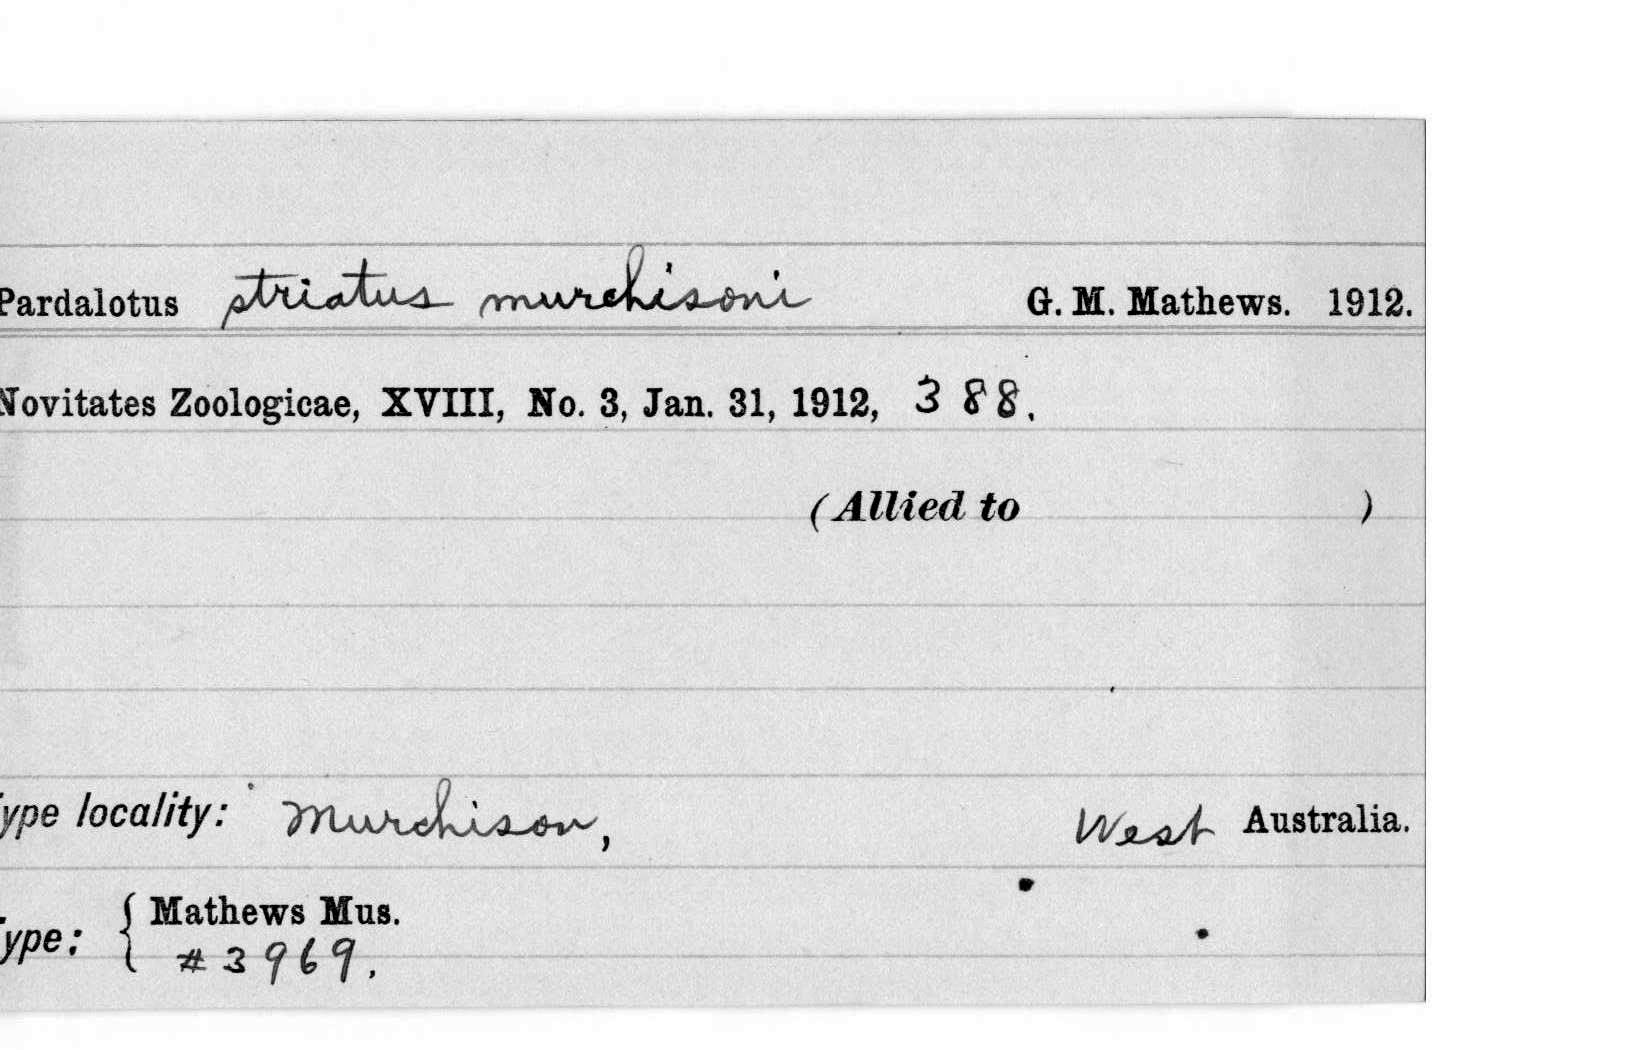 Pardalotus striatus murchisoni G. M. Mathews. 1912.
Novitates Zoologicae, XVIII, No. 3, Jan. 31, 1912, 388.
(Allied to )
Type locality: Murchison, West Australia.
Type: { Mathews Mus.
#3969.